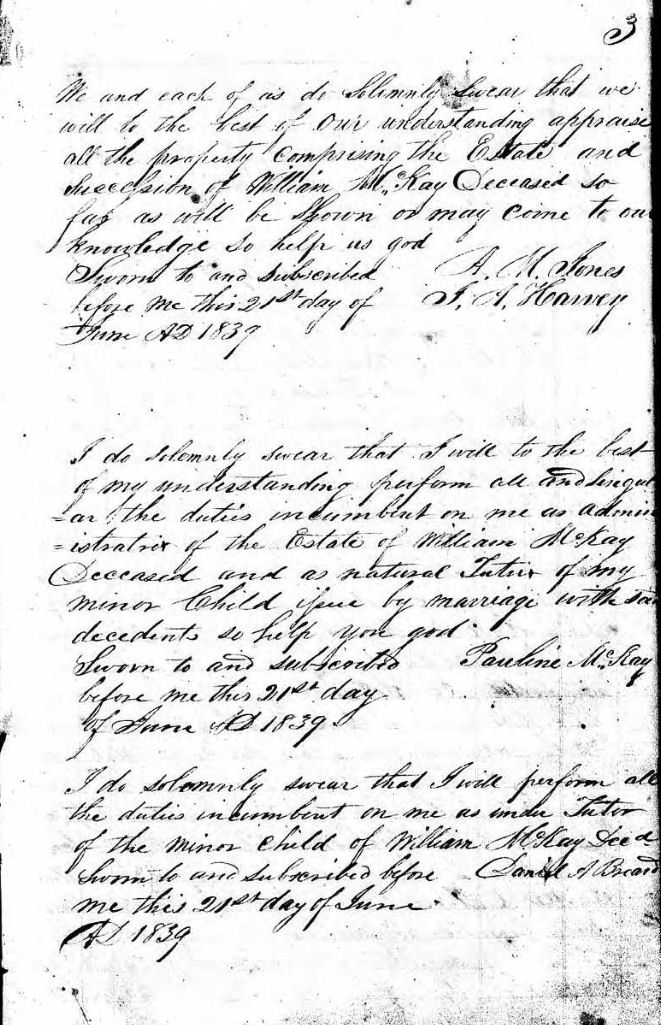 3
We and each of us do Solemnly Swear that we
will to the best of our understanding appraise
all the property comprising the Estate and
Succession of William McKay Deceased so
far as will be Shown or may come to our
knowledge so help us god
Sworn to and subscribed A. M. Jones
before me this 21st day of J. A. Harvey
June AD 1839
I do Solemnly swear that I will to the best
of my understanding perform all and singul
=ar the duties incumbent on me as admin
=istratrix of the Estate of William McKay
Deceased and as natural Tutrix of my
minor Child issue by marriage with said
decedent so help you god.
Sworn to and subscribed Pauline McKay
before me this 21st day
of June AD 1839
I do solemnly swear that I will perform all
the duties incumbent on me as under Tutor
of the minor child of William McKay Decd
Sworn to and subscribed before Daniel A Breard
me this 21st day of June
AD 1839